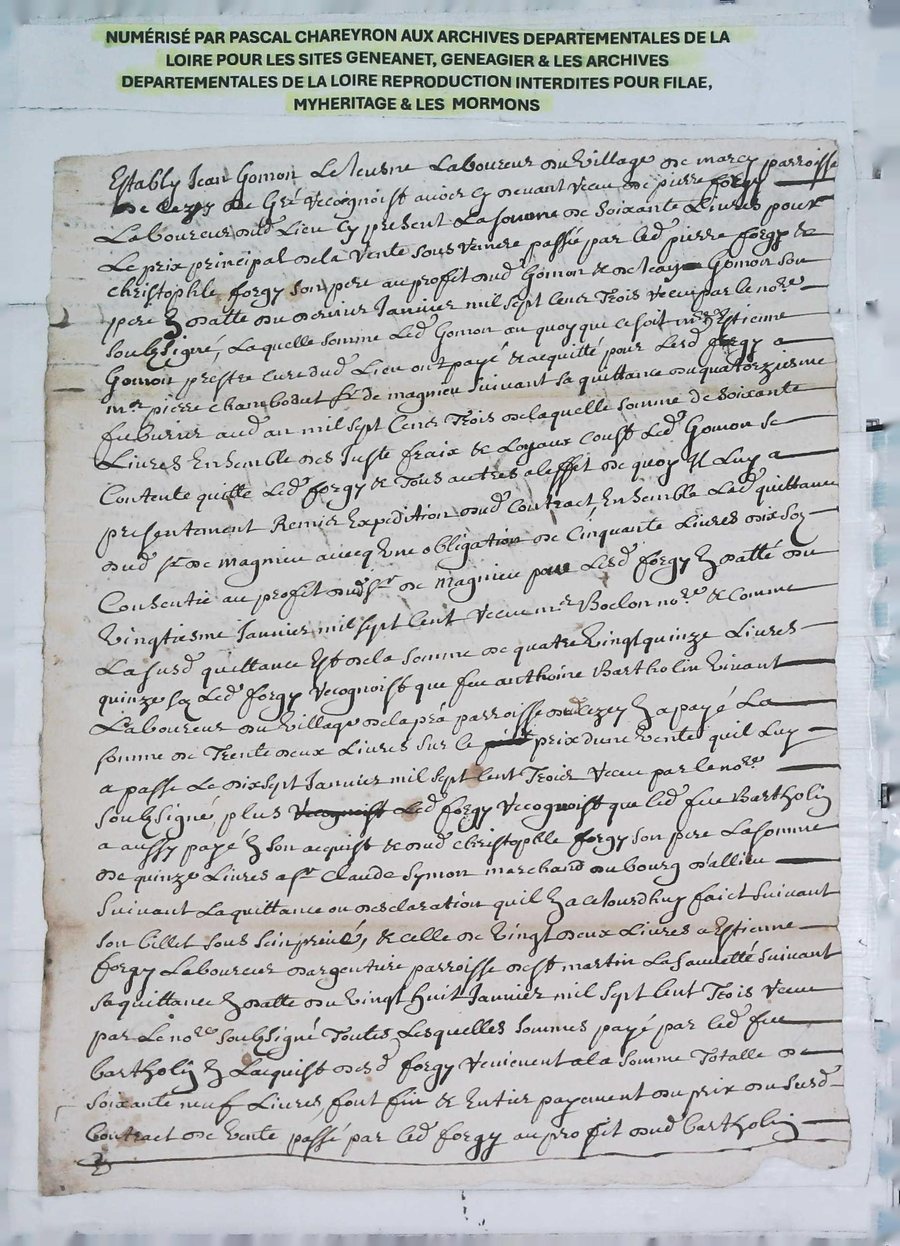 NUMÉRISÉ PAR PASCAL CHAREYRON AUX ARCHIVES DEPARTEMENTALES DE LA
LOIRE POUR LES SITES GENEANET, GENEAGIER & LES ARCHIVES
DEPARTEMENTALES DE LA LOIRE REPRODUCTION INTERDITES POUR FILAE,
MYHERITAGE & LES MORMONS
Estably Jean Gomon Le Jeusne Laboureur du village de marcy parroisse
de Lezey de Gré recognoist avoir cy devant receu de pierre forgy
Laboureur dud Lieu cy present La somme de soixante Livres pour
Le prix principal de la vente sous venire passée par led pierre forgy &
christophle forgy son pere au profit dud Gomon & de Jean Gomon son
pere En datte du Janvier mil sept cent Trois receu par le nore
soubsigné, Laquelle somme Led Gomon au quoy que ce soit mre Estienne
Gomon prestre curé dud Lieu ont payé & acquitté pour Lesd forgy a
mre pierre chambodut sr de magnieu suivant sa quittance du quatorziesme
febvrier aud an mil sept Cent Trois de laquelle somme de soixante
Livres Ensemble des Juste fraix & Loyaux coust Led Gomon se
Contente quitte Led forgy & tous autres a leffet de quoy Il Luy a
presentement Remier Expedition dud Contract, Ensemble Lad quittance
dud sr de magnieu avecq Une obligation de Cinquante Livres dix soz
Consentie au profit dud sr de Magnieu par Lesd forgy En datté du
Vingtiesme Janvier mil sept Cent receue mre Boclon nore & Comme
La susd quittance Est de la somme de quatre Vingt quinze Livres
quinze soz Led forgy recognoist que feu anthoine Bartholin vivant
Laboureur du village de la prà parroisse de Lezey En a payé La
somme de Trente deux Livres sur le prix dune vente quil Luy
a passé Le dix sept Janvier mil sept Cent Trois receu par le nore
soubsigné, plus recognoist Led forgy recognoist que led feu Bartholin
a aussy payé En son acquist & dud christophle forgy son pere La somme
de quinze Livres a sr Claude Symon marchand du bourg d'allieu
suivant La quittance ou declaration quil En a ce Jourdhuy faict suivant
son billet sous sein privé, & celle de Vingt deux Livres a Estienne
forgy Laboureur dargentiere parroisse de st martin La sauveté suivant
sa quittance En datte du Vingt huit Janvier mil sept Cent Trois receue
par Le nore soubsigné Toutes Lesquelles sommes payé par led feu
bartholin En Lacquist desd forgy reviennent a la somme Totalle de
soixante neuf Livres, font fin & Entier payement du prix du susd
Contract de vente passé par led forgy au profit dud bartholin